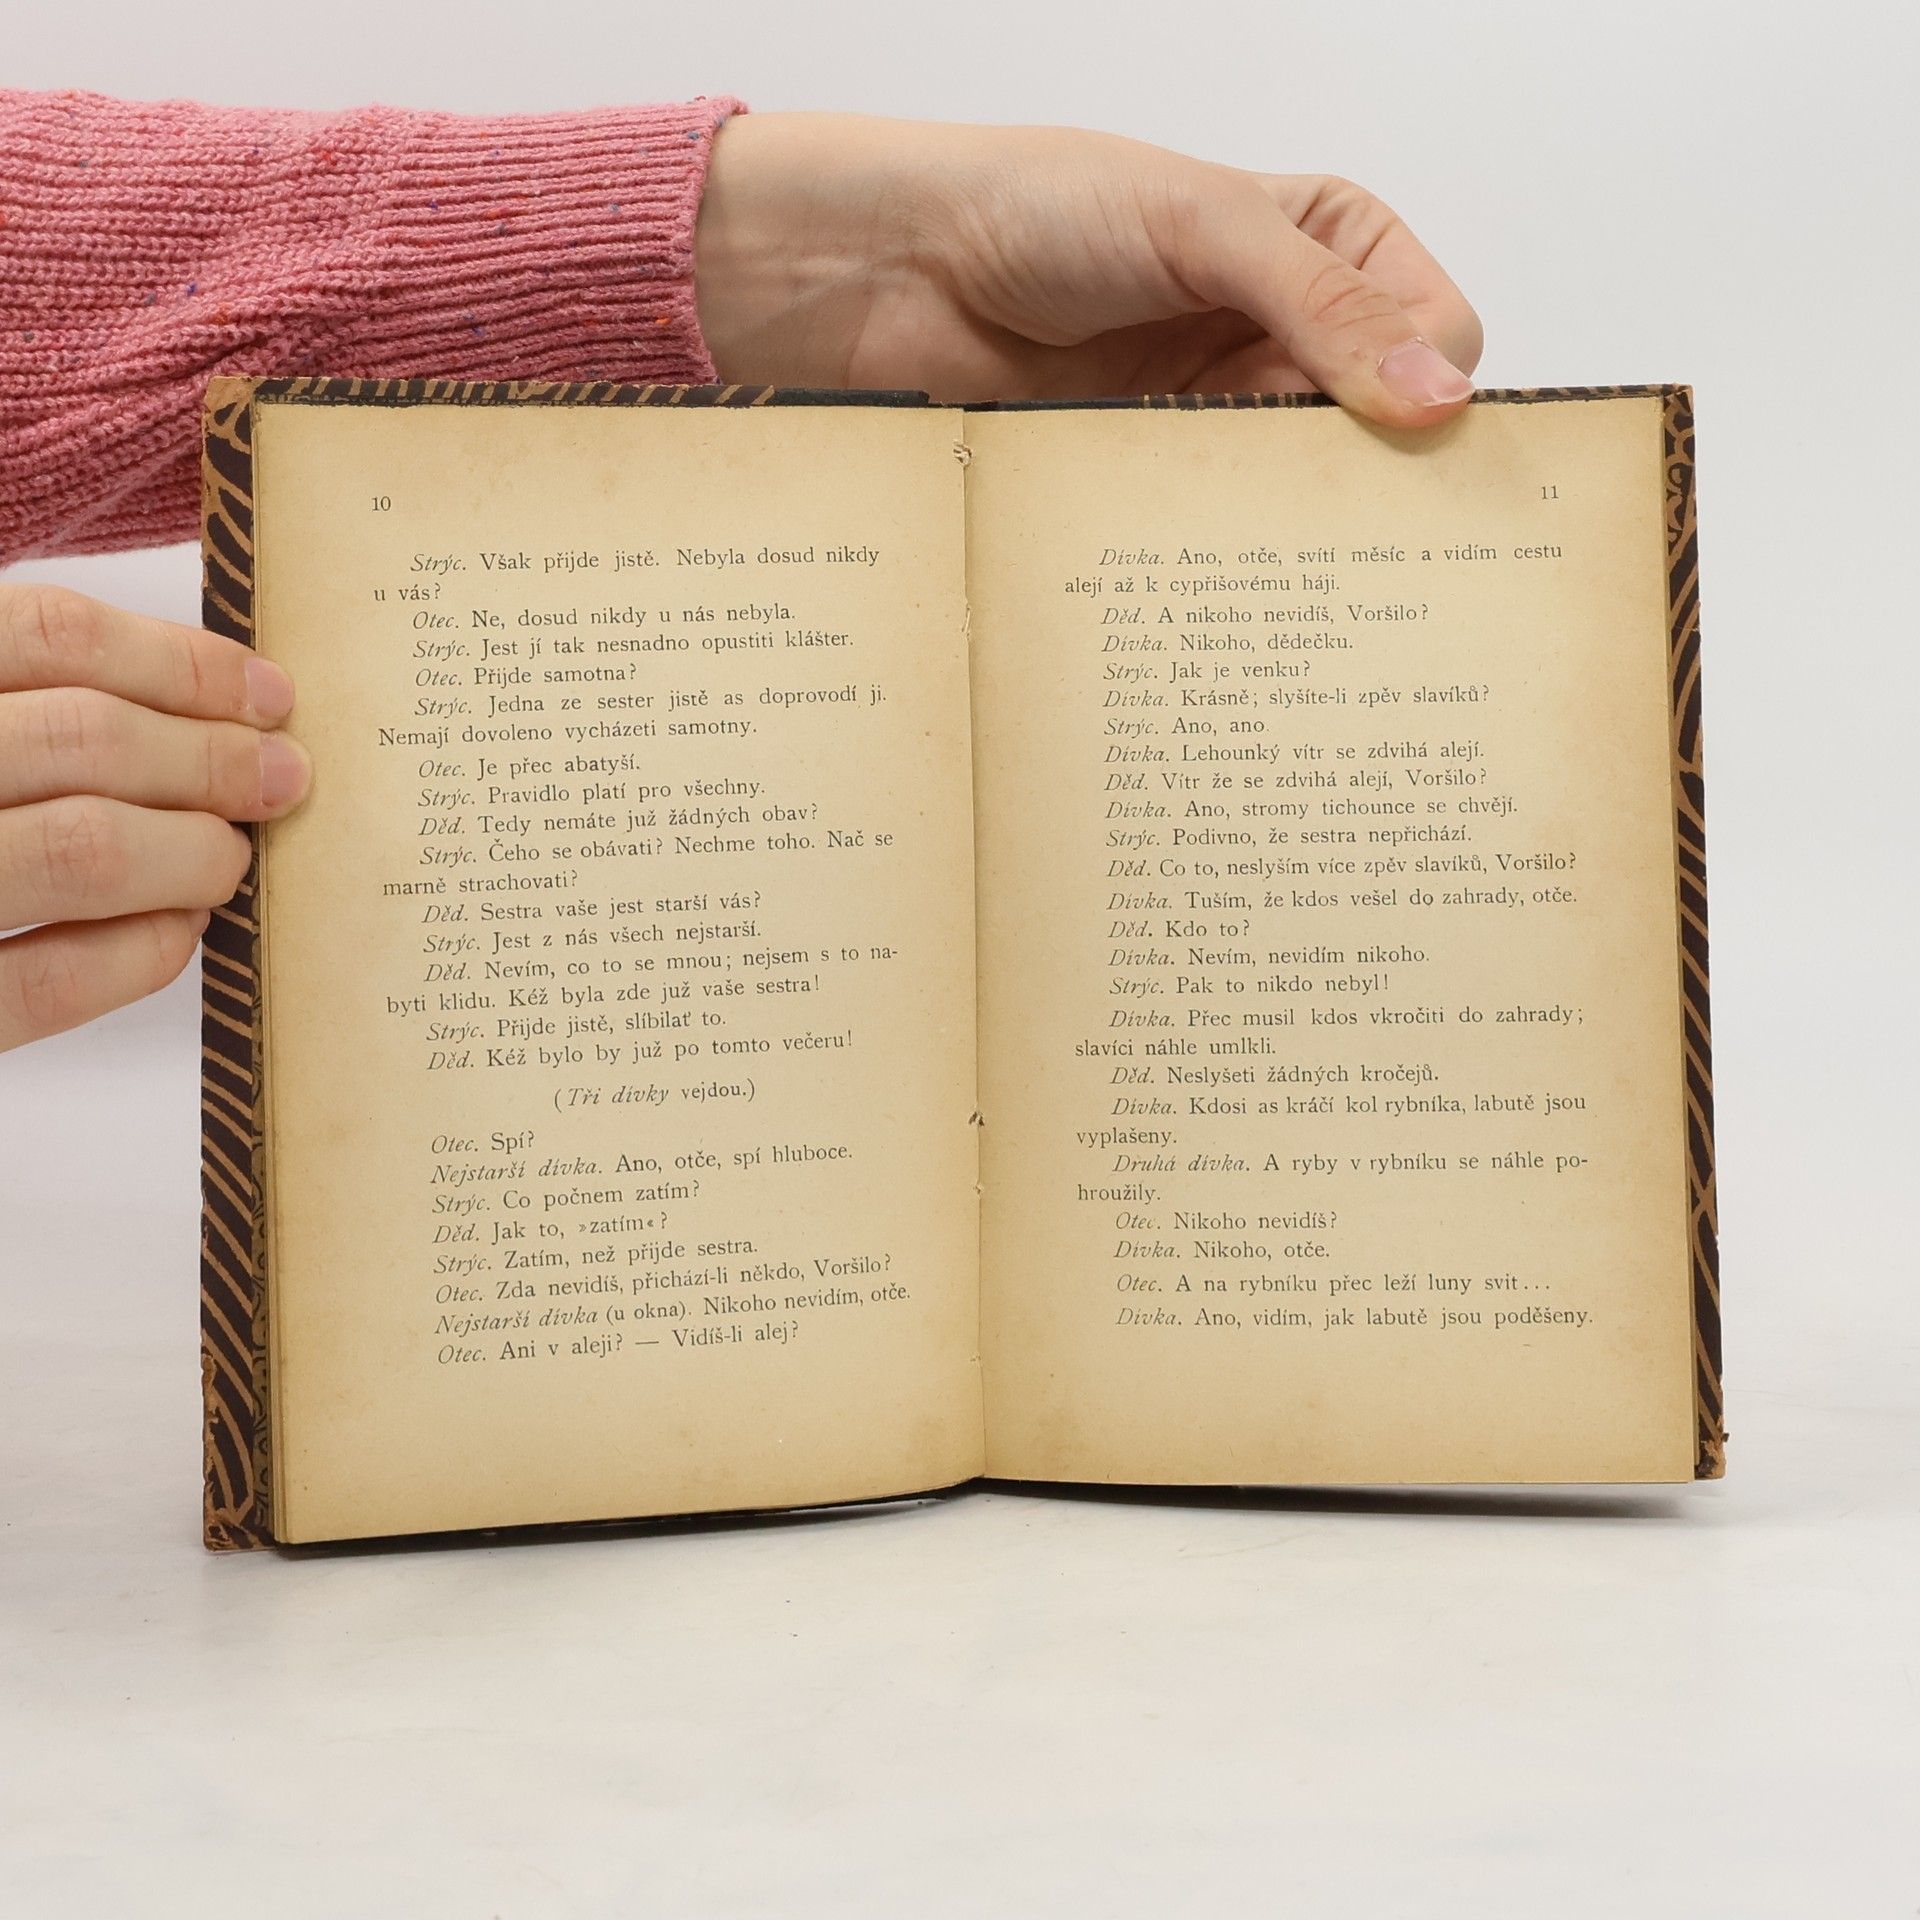 10
Strýc. Však přijde jistě. Nebyla dosud nikdy
u vás?
Otec. Ne, dosud nikdy u nás nebyla.
Strýc. Jest jí tak nesnadno opustiti klášter.
Otec. Přijde samotna?
Strýc. Jedna ze sester jistě as doprovodí ji.
Nemají dovoleno vycházeti samotny.
Otec. Je přec abatyší.
Strýc. Pravidlo platí pro všechny.
Děd. Tedy nemáte již žádných obav?
Strýc. Čeho se obávati? Nechme toho. Nač se
marně strachovati?
Děd. Sestra vaše jest starší vás?
Strýc. Jest z nás všech nejstarší.
Děd. Nevím, co to se mnou; nejsem s to na-
byti klidu. Kéž byla zde již vaše sestra!
Strýc. Přijde jistě, slíbilať to.
Děd. Kéž bylo by již po tomto večeru!
(Tři dívky vejdou.)
Otec. Spí?
Nejstarší dívka. Ano, otče, spí hluboce.
Strýc. Co počnem zatím?
Děd. Jak to, »zatím«?
Strýc. Zatím, než přijde sestra.
Otec. Zda nevidíš, přichází-li někdo, Voršilo?
Nejstarší dívka (u okna). Nikoho nevidím, otče.
Otec. Ani v aleji? — Vidíš-li alej?
11
Dívka. Ano, otče, svítí měsíc a vidím cestu
alejí až k cypřišovému háji.
Děd. A nikoho nevidíš, Voršilo?
Dívka. Nikoho, dědečku.
Strýc. Jak je venku?
Dívka. Krásně; slyšíte-li zpěv slavíků?
Strýc. Ano, ano.
Dívka. Lehounký vítr se zdvihá alejí.
Děd. Vítr že se zdvihá alejí, Voršilo?
Dívka. Ano, stromy tichounce se chvějí.
Strýc. Podivno, že sestra nepřichází.
Děd. Co to, neslyším více zpěv slavíků, Voršilo?
Dívka. Tuším, že kdos vešel do zahrady, otče.
Děd. Kdo to?
Dívka. Nevím, nevidím nikoho.
Strýc. Pak to nikdo nebyl!
Dívka. Přec musil kdos vkročiti do zahrady;
slavíci náhle umlkli.
Děd. Neslyšeti žádných kročejů.
Dívka. Kdosi as kráčí kol rybníka, labutě jsou
vyplašeny.
Druhá dívka. A ryby v rybníku se náhle po-
hroužily.
Otec. Nikoho nevidíš?
Dívka. Nikoho, otče.
Otec. A na rybníku přec leží luny svit...
Dívka. Ano, vidím, jak labutě jsou poděšeny.